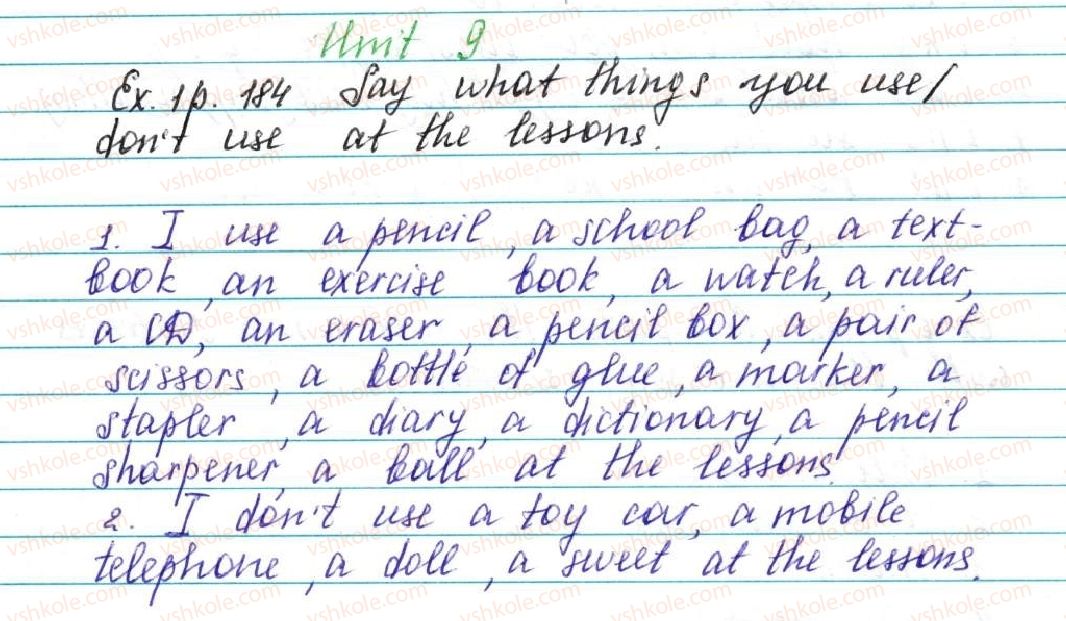 Unit 9
Ex. 1 p. 184 Say what things you use/
don't use at the lessons.
1. I use a pencil, a school bag, a text-
book, an exercise book, a watch, a ruler,
a CD, an eraser, a pencil box, a pair of
scissors, a bottle of glue, a marker, a
stapler, a diary, a dictionary, a pencil
sharpener, a ball at the lessons.
2. I don't use a toy car, a mobile
telephone, a doll, a sweet at the lessons.
vshkole.com